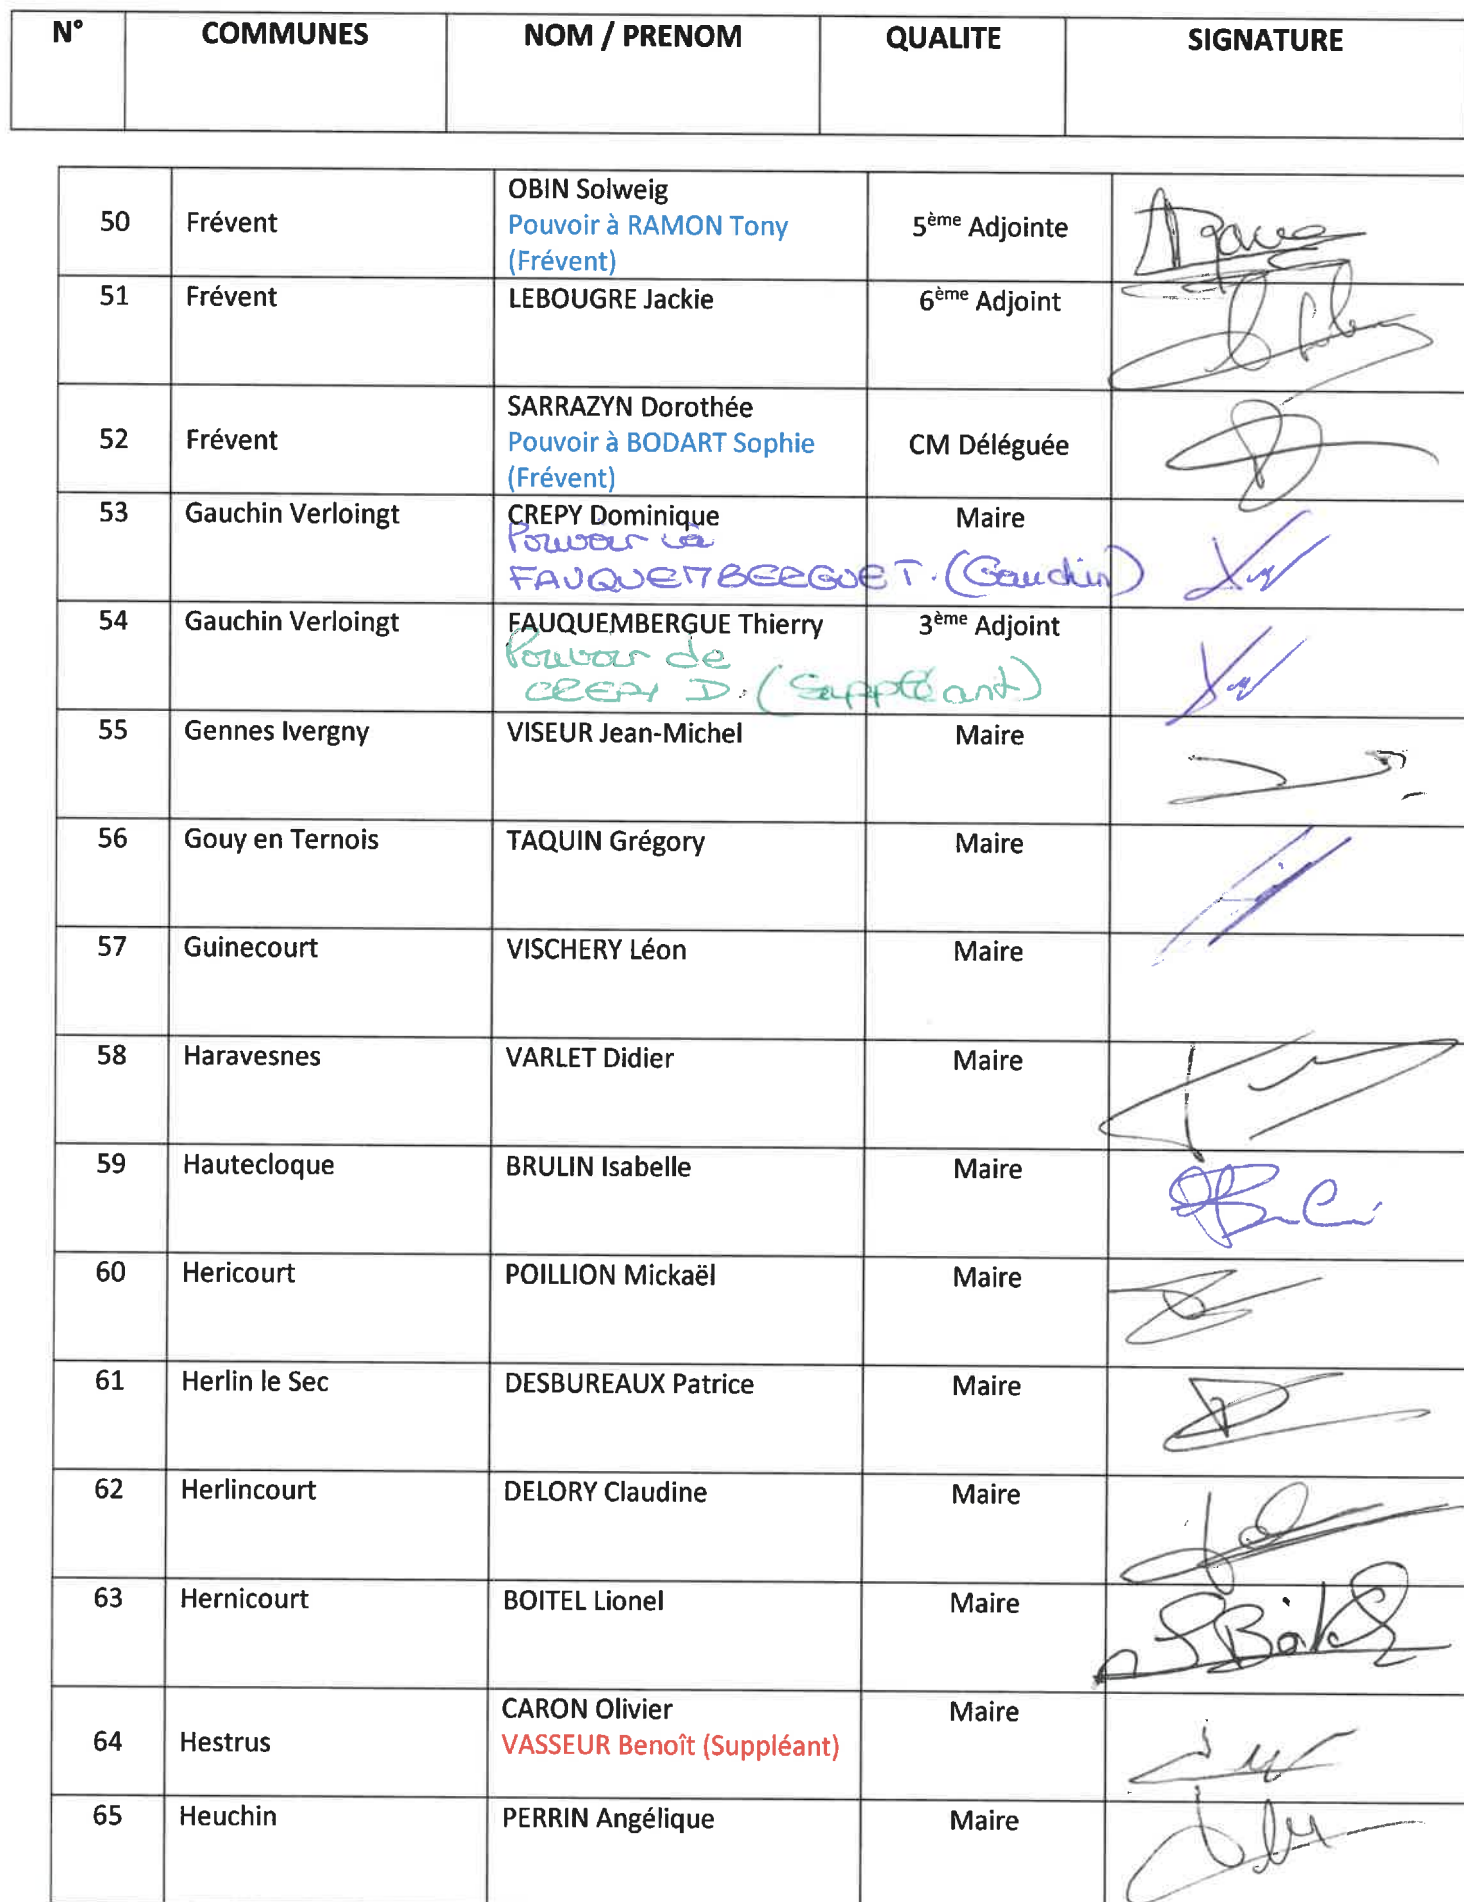 N° COMMUNES NOM / PRENOM QUALITE SIGNATURE
OBIN Solweig
50 Frévent Pouvoir à RAMON Tony 5ème Adjointe
(Frévent)
51 Frévent LEBOUGRE Jackie 6ème Adjoint
SARRAZYN Dorothée
52 Frévent Pouvoir à BODART Sophie CM Déléguée
(Frévent)
53 Gauchin Verloingt CREPY Dominique Maire
Pouvoir à
FAUQUEMBERGUE T. (Gauchin)
54 Gauchin Verloingt FAUQUEMBERGUE Thierry 3ème Adjoint
Pouvoir de
CREPY D. (Suppléant)
55 Gennes Ivergny VISEUR Jean-Michel Maire
56 Gouy en Ternois TAQUIN Grégory Maire
57 Guinecourt VISCHERY Léon Maire
58 Haravesnes VARLET Didier Maire
59 Hautecloque BRULIN Isabelle Maire
60 Hericourt POILLION Mickaël Maire
61 Herlin le Sec DESBUREAUX Patrice Maire
62 Herlincourt DELORY Claudine Maire
63 Hernicourt BOITEL Lionel Maire
CARON Olivier Maire
64 Hestrus VASSEUR Benoît (Suppléant)
65 Heuchin PERRIN Angélique Maire